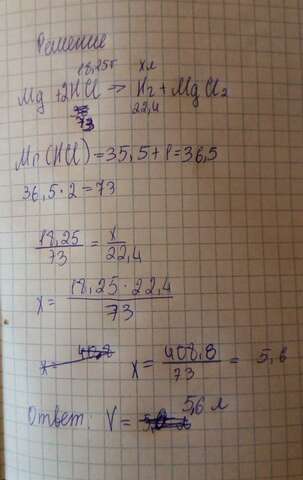 Решение
18,25г хл
Mg + 2HCl → H2 + MgCl2
73 22,4
Mr(HCl) = 35,5 + 1 = 36,5
36,5 · 2 = 73
18,25/73 = x/22,4
x = 18,25 · 22,4/73
x = 408,8/73 = 5,6
Ответ: V = 5,6 л